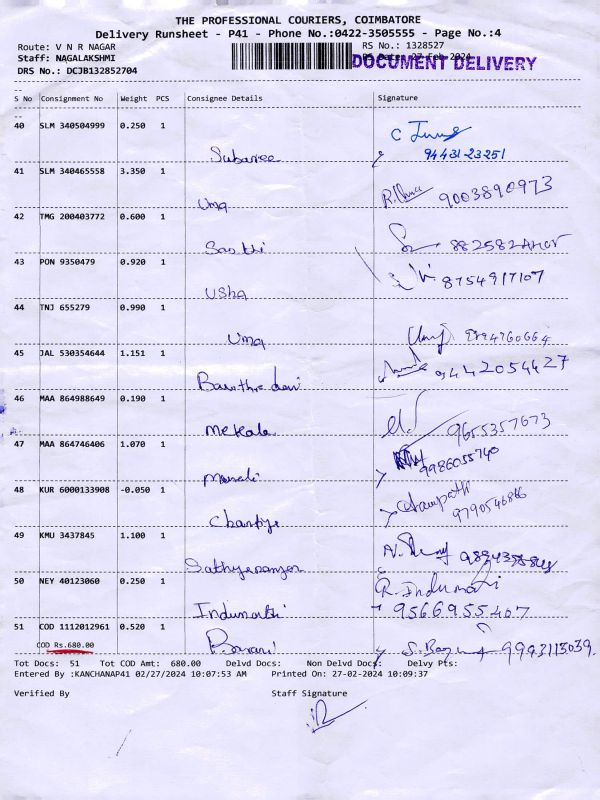 THE PROFESSIONAL COURIERS, COIMBATORE
Delivery Runsheet - P41 - Phone No.:0422-3505555 - Page No.:4
Route: V N R NAGAR
RS No.: 1328527
Staff: NAGALAKSHMI
27 Feb 2024
DOCUMENT DELIVERY
DRS No.: DCJB132852704
S No Consignment No Weight PCS Consignee Details Signature
40 SLM 340504999 0.250 1
Subasree 94431 23251
41 SLM 340465558 3.350 1
Uma 9003890973
42 TMG 200403772 0.600 1
Sasthi
43 PON 9350479 0.920 1
Usha 8754917107
44 TNJ 655279 0.990 1
Uma
45 JAL 530354644 1.151 1
9442054427
46 MAA 864988649 0.190 1
Mekala 9655357673
47 MAA 864746406 1.070 1
9986055740
48 KUR 6000133908 -0.050 1
49 KMU 3437845 1.100 1
50 NEY 40123060 0.250 1
R. Indumathi
Indumathi 9566955407
51 COD 1112012961 0.520 1
COD Rs.680.00
Bavani 9943115039.
Tot Docs: 51 Tot COD Amt: 680.00 Delvd Docs: Non Delvd Docs: Delvy Pts:
Entered By :KANCHANAP41 02/27/2024 10:07:53 AM Printed On: 27-02-2024 10:09:37
Verified By Staff Signature